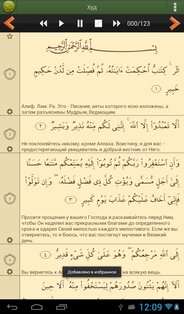 Худ
000/123
بِسْمِ اللَّهِ الرَّحْمَٰنِ الرَّحِيمِ
الر ۚ كِتَابٌ أُحْكِمَتْ آيَاتُهُ ثُمَّ فُصِّلَتْ مِن لَّدُنْ حَكِيمٍ
خَبِيرٍ
Алиф. Лам. Ра. Это - Писание, аяты которого ясно изложены, а
затем разъяснены Мудрым, Ведающим.
أَلَّا تَعْبُدُوا إِلَّا اللَّهَ ۚ إِنَّنِي لَكُم مِّنْهُ نَذِيرٌ وَبَشِيرٌ
Не поклоняйтесь никому, кроме Аллаха. Воистину, я для вас -
предостерегающий увещеватель и добрый вестник от Него.
وَأَنِ اسْتَغْفِرُوا رَبَّكُمْ ثُمَّ تُوبُوا إِلَيْهِ يُمَتِّعْكُم مَّتَاعًا
حَسَنًا إِلَىٰ أَجَلٍ مُّسَمًّى وَيُؤْتِ كُلَّ ذِي فَضْلٍ فَضْلَهُ ۖ وَإِن تَوَلَّوْا
فَإِنِّي أَخَافُ عَلَيْكُمْ عَذَابَ يَوْمٍ كَبِيرٍ
Просите прощения у вашего Господа и раскаивайтесь перед Ним,
чтобы Он наделил вас прекрасными благами до определенного
срока и одарил Своей милостью каждого милостивого. Если же вы
отвернетесь, то я боюсь, что вас постигнут мучения в Великий
день.
إِلَى اللَّهِ مَرْجِعُكُمْ ۖ وَهُوَ عَلَىٰ كُلِّ شَيْءٍ قَدِيرٌ
Вы вернетесь к на всякую вещь.
Добавлено в избранное
أَلَا إِنَّهُمْ يَثْنُونَ صُدُورَهُمْ لِيَسْتَخْفُوا مِنْهُ أَلَا حِينَ
12:09